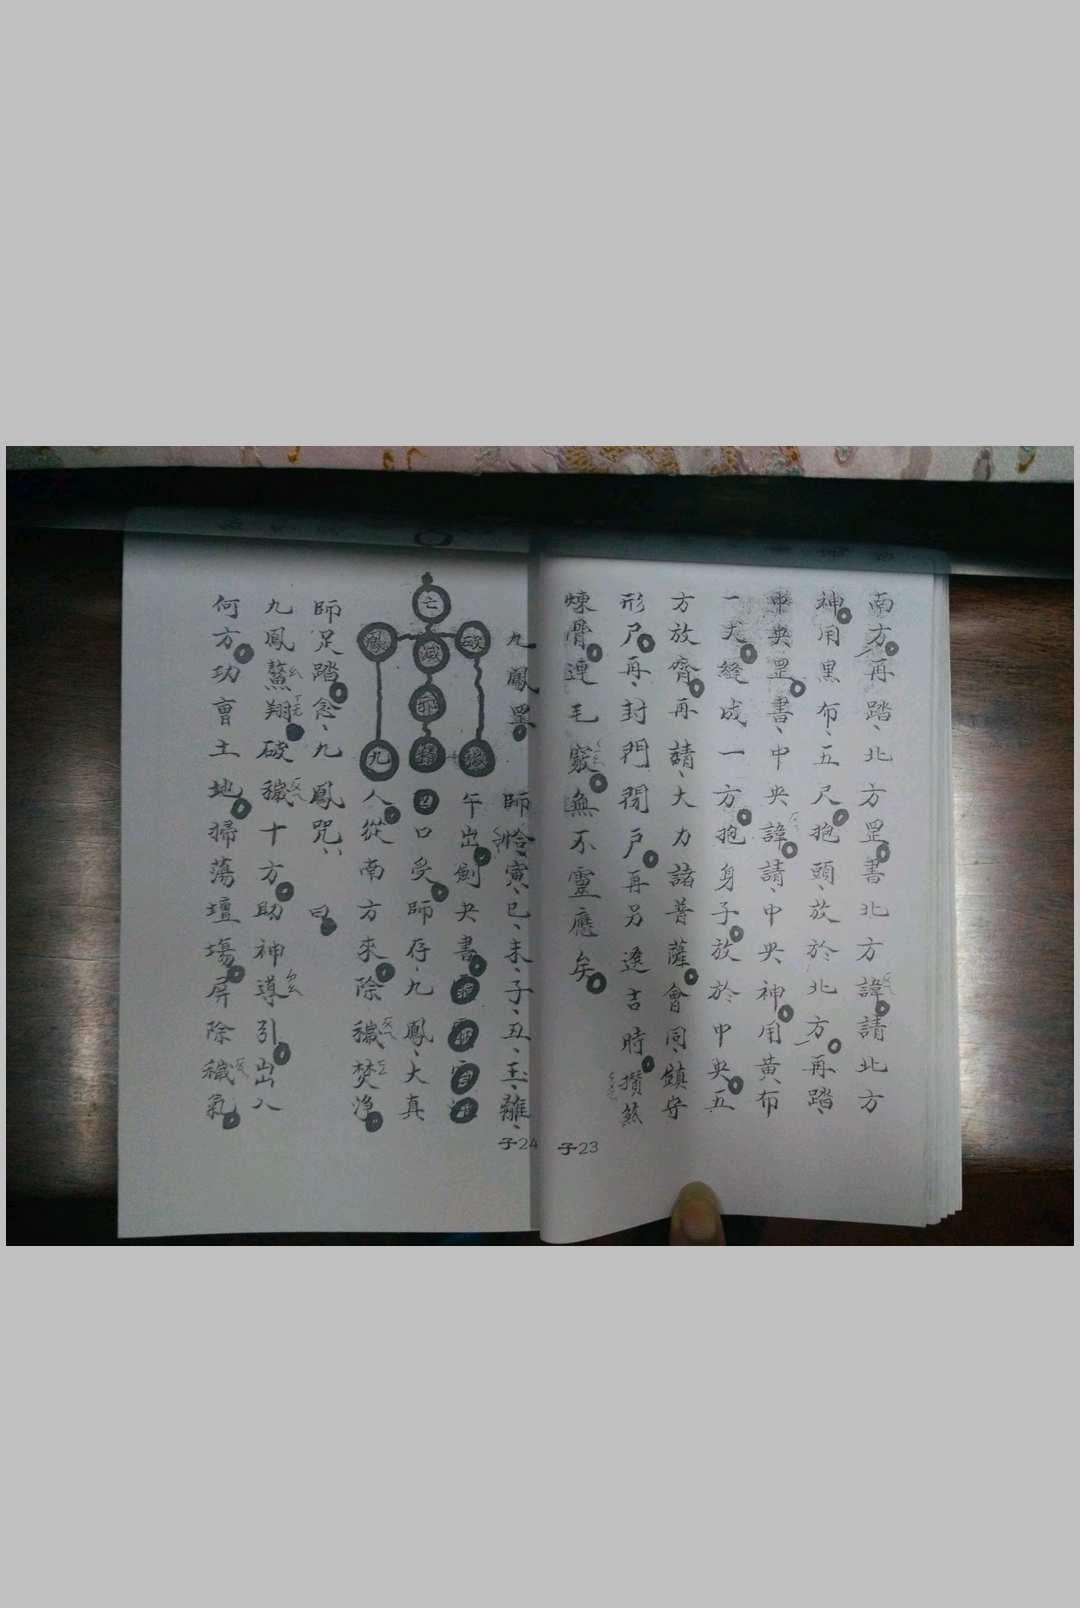 南方再踏、北方罡書北方諱請北方
神用黑布、五尺抱頭、放於北方再踏、
中央罡書、中央諱請、中央神用黃布
一丈縫成一方抱身子放於中央五
方放齊再請、大力諸菩薩會同、鎮守
形尸再、封門閉戶再另選吉時攢煞
煉骨連毛竅無不靈應矣
子23
九鳳罡
師恰寅、巳、未、子、丑、玉、離、
午出劍央書
口受師存、九鳳、大真
人從南方來除穢焚淨
亡
破
滅
九
師足踏念、九鳳咒、曰
九鳳翺翔破穢十方助神導引出入
何方功曹土地掃蕩壇場屏除穢氣
子24